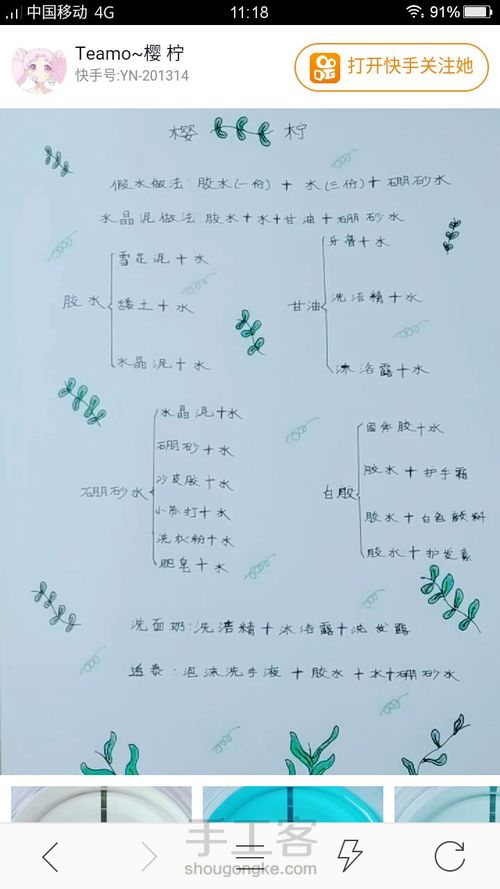 中国移动 4G 11:18 91%
Teamo~樱 柠
快手号:YN-201314
打开快手关注她
樱 柠
假水做法:胶水(一份) + 水(三份)+ 硼砂水
水晶泥做法:胶水+水+甘油+硼砂水
胶水
雪花泥+水
黏土+水
水晶泥+水
甘油
牙膏+水
洗洁精+水
沐浴露+水
硼砂水
水晶泥+水
硼砂+水
沙皮胶+水
小苏打+水
洗衣粉+水
肥皂+水
白胶
固体胶+水
胶水+护手霜
胶水+白色颜料
胶水+护发素
洗面奶:洗洁精+沐浴露+洗发露
透泰:泡沫洗手液+胶水+水+硼砂水
手工客
shougongke.com